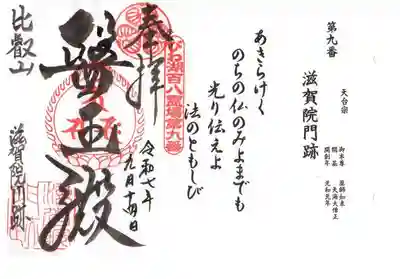 第九番
天台宗
滋賀院門跡
御本尊 薬師如来
開基 天海大僧正
開創 元和元年
あきらけく
のちの仏のみよまでも
光り伝えよ
法のともしび
奉拝
びわ湖百八霊場第九番
令和七年
九月十四日
醫王殿
比叡山
滋賀院門跡